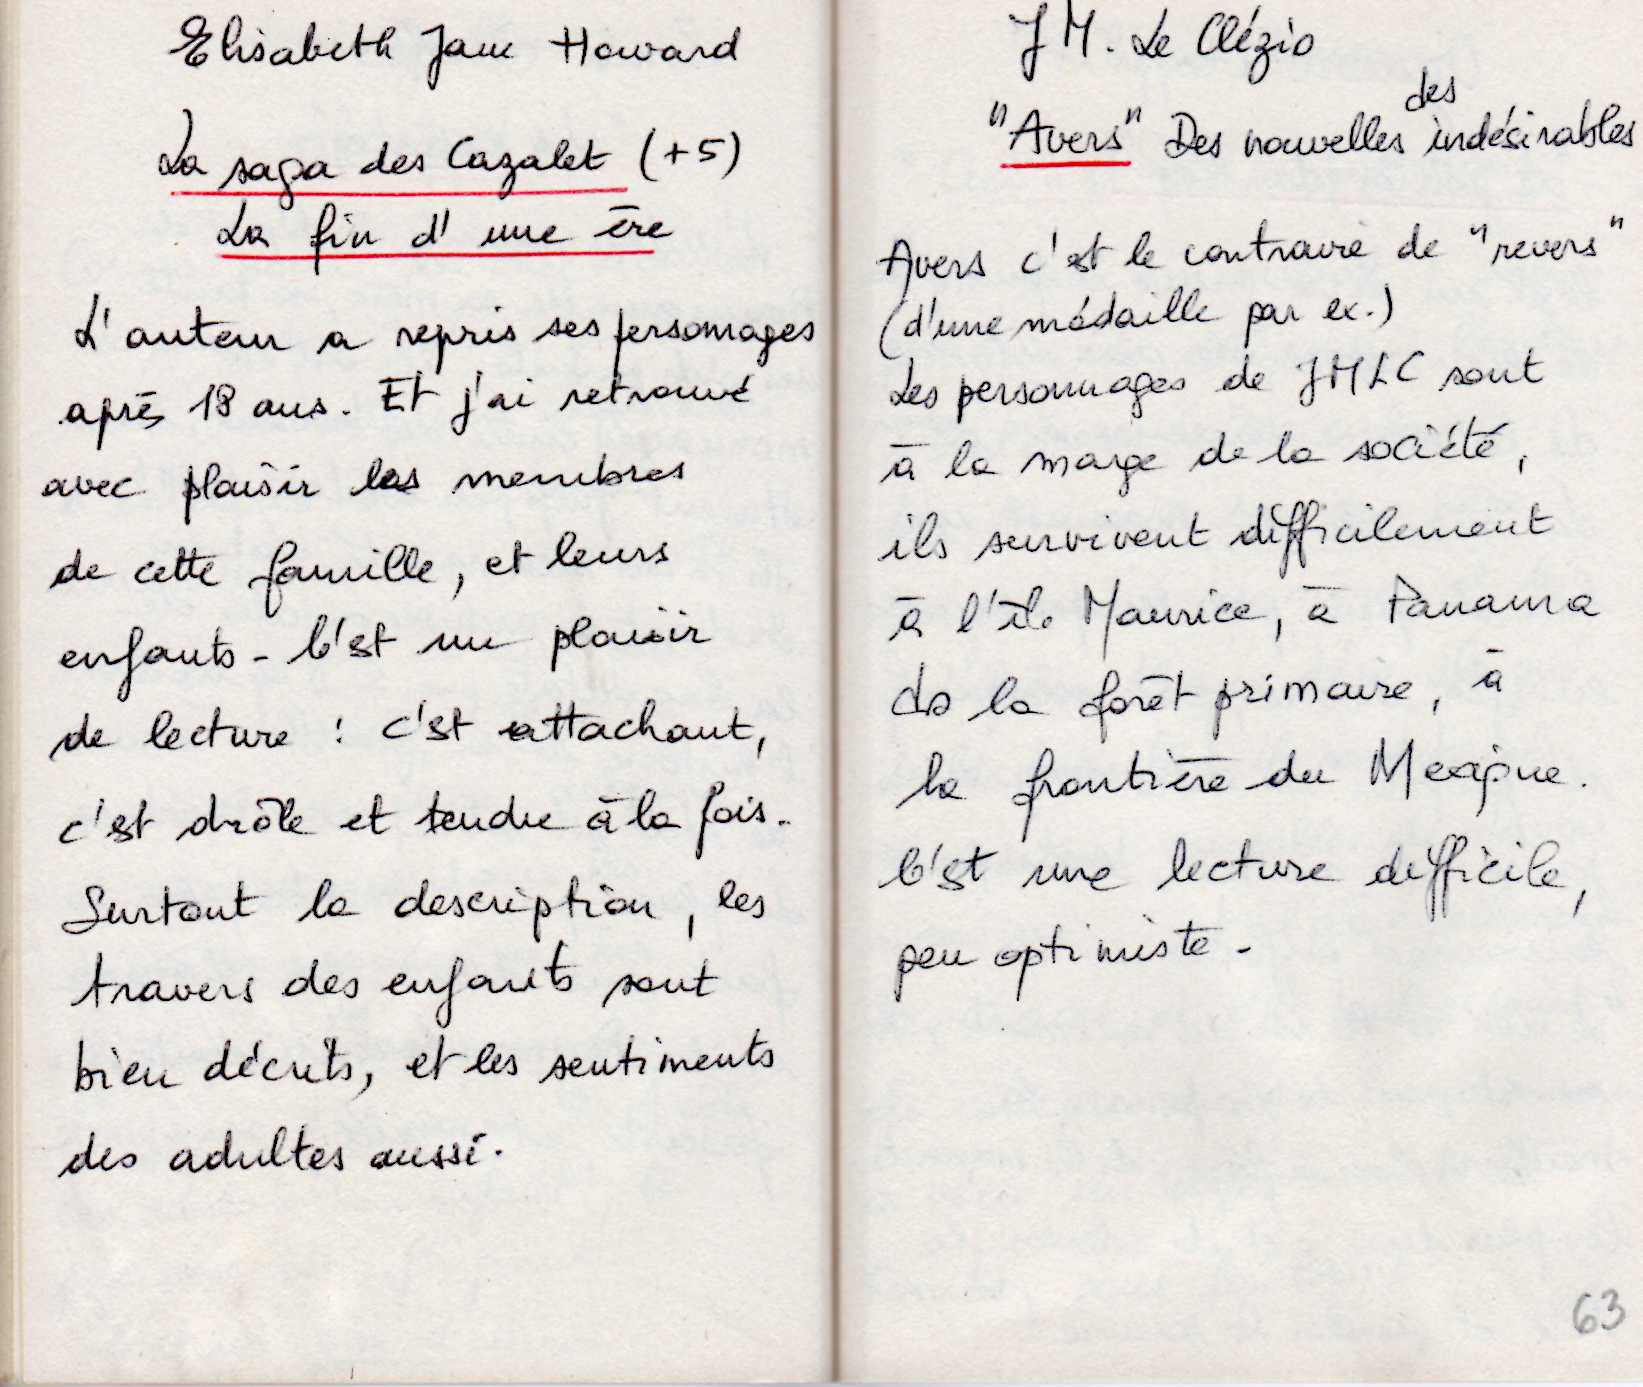 Elisabeth Jane Howard
La saga des Cazalet (+5)
La fin d'une ère
L'auteur a repris ses personnages
après 18 ans. Et j'ai retrouvé
avec plaisir les membres
de cette famille, et leurs
enfants - C'est un plaisir
de lecture : c'est attachant,
c'est drôle et tendre à la fois.
Surtout la description, les
travers des enfants sont
bien décrits, et les sentiments
des adultes aussi.
JM. Le Clézio
"Avers" Des nouvelles des indésirables
Avers c'est le contraire de "revers"
(d'une médaille par ex.)
Les personnages de JMLC sont
à la marge de la société,
ils survivent difficilement
à l'île Maurice, à Panama
ds la forêt primaire, à
la frontière du Mexique.
C'est une lecture difficile,
peu optimiste -
63